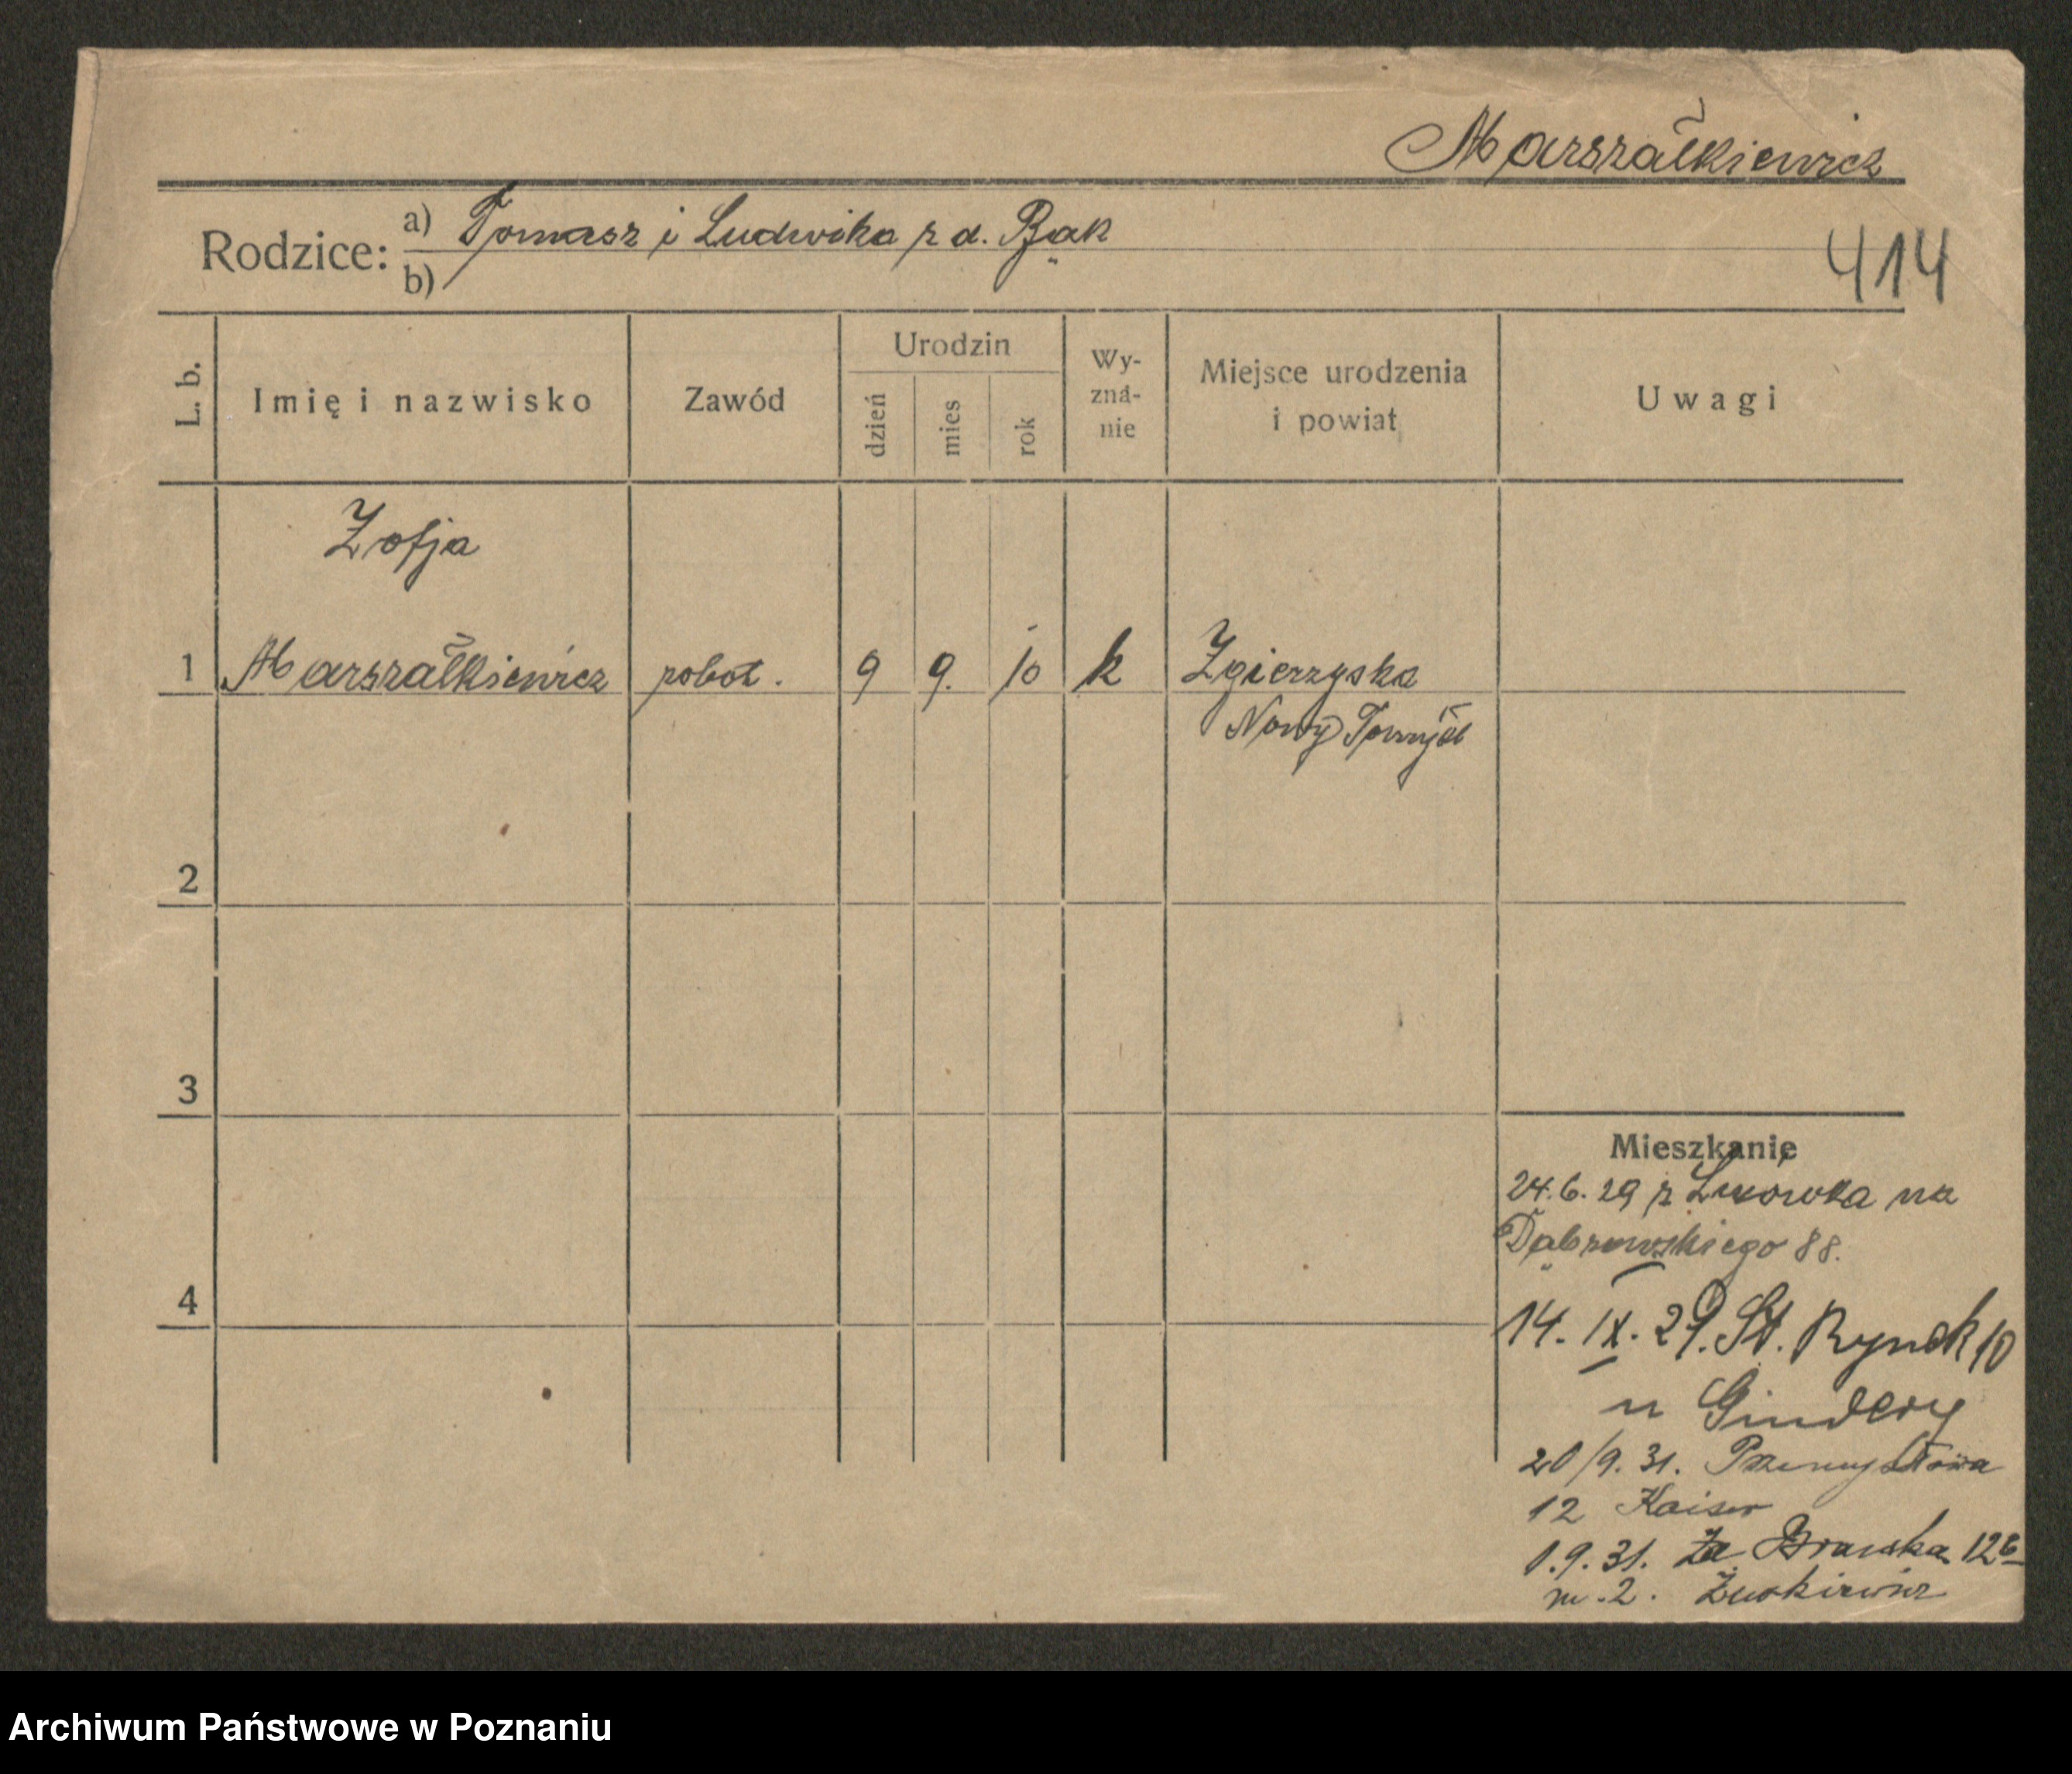 Marszałkiewicz
Rodzice: a) Tomasz i Ludwika z d. Bąk
b)
414
L. b. Imię i nazwisko Zawód Urodzin dzień mies rok Wy-zna-nie Miejsce urodzenia i powiat Uwagi
Zofja
1 Marszałkiewicz robot. 9 9. 10 k Zgierzyska
Nowy Tomyśl
2
3
4
Mieszkanie
24.6.29 z Lwówka na
Dąbrowskiego 88.
14. IX. 29. St. Rynek 10
u Gindery
20/9. 31. Przemysłowa
12 Kaiser
1.9.31. Za Bramką 12
m. 2.
Archiwum Państwowe w Poznaniu